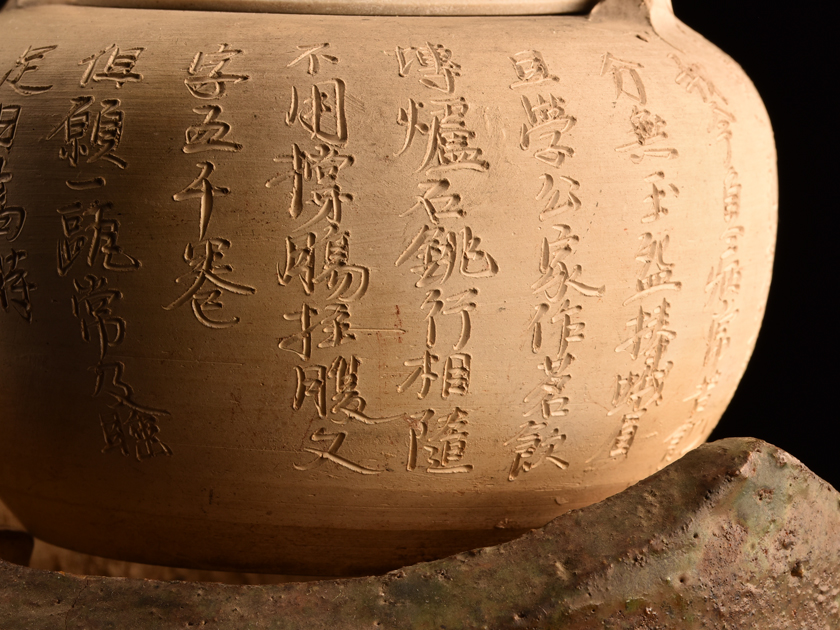 分無玉盌捧蛾眉
且學公家作茗飲
塼爐石銚行相隨
不用撐腸拄腹文
字五千卷
但願一甌常及睡
足日高時